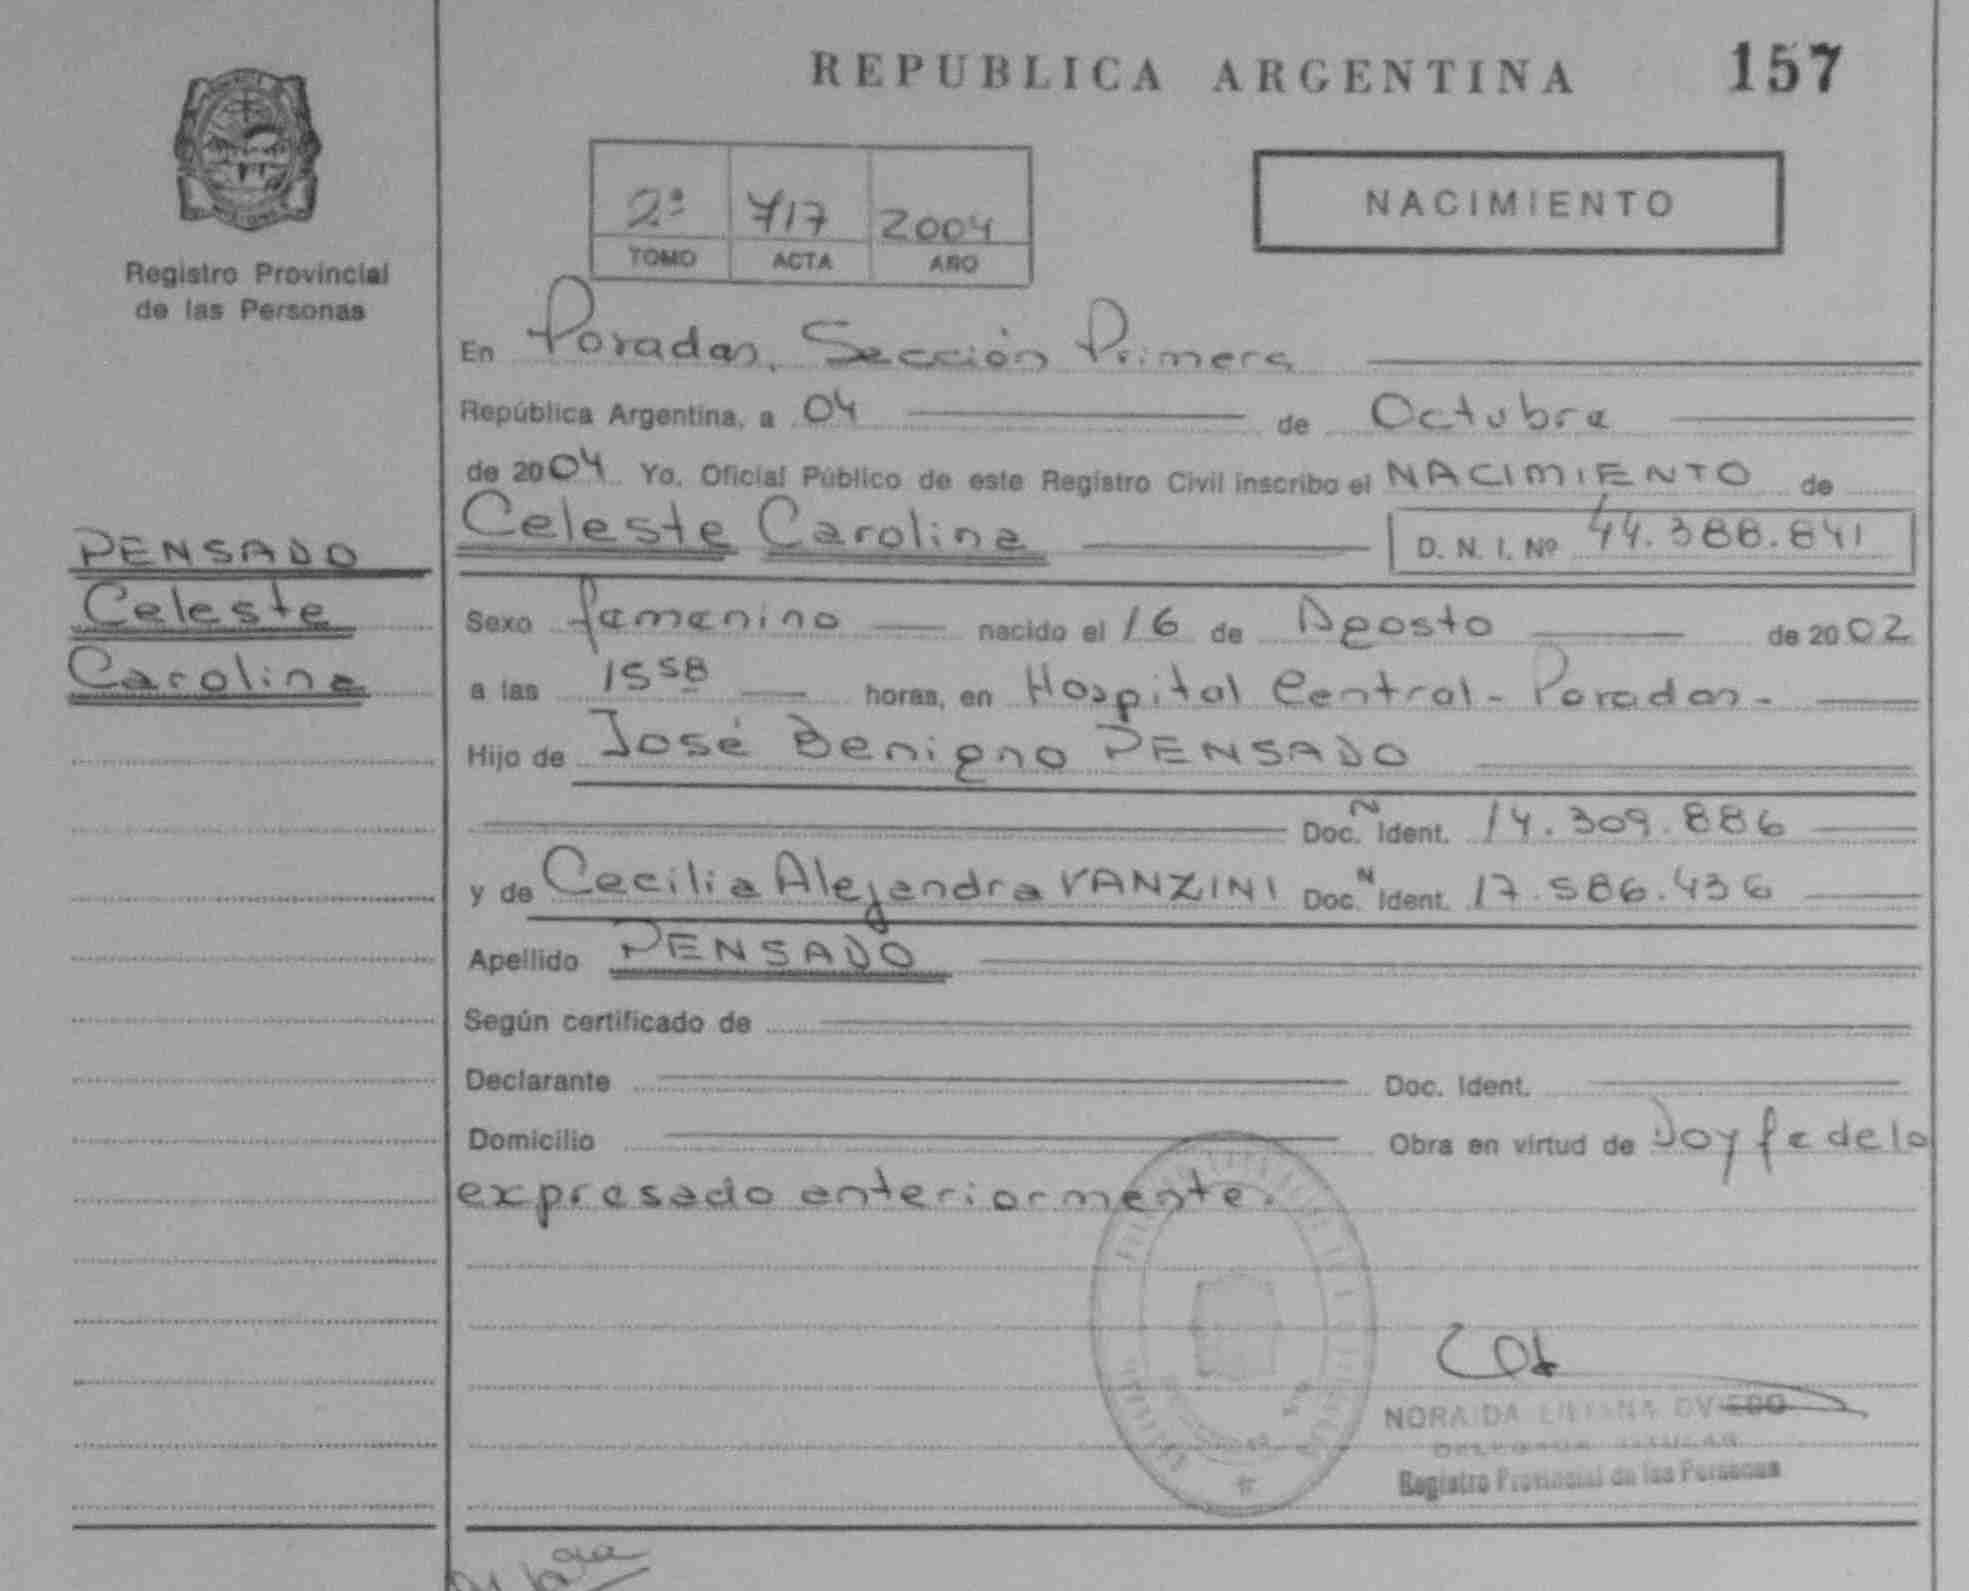 REPUBLICA ARGENTINA 157
2ª 717 2004
TOMO ACTA AÑO
NACIMIENTO
Registro Provincial
de las Personas
En Posadas, Sección Primera
República Argentina, a 04 de Octubre
de 2004 Yo, Oficial Público de este Registro Civil inscribo el NACIMIENTO de
Celeste Carolina D. N. I. Nº 44.388.841
PENSADO
Celeste
Carolina
Sexo femenino nacido el 16 de Agosto de 2002
a las 15 58 horas, en Hospital Central - Posadas -
Hijo de José Benigno PENSADO
Doc. N Ident. 14.309.886
y de Cecilia Alejandra VANZINI Doc. N Ident. 17.586.436
Apellido PENSADO
Según certificado de
Declarante Doc. Ident.
Domicilio Obra en virtud de Doy fe de lo
expresado anteriormente.
NORAIDA LILIANA OVIEDO
Registro Provincial de las Personas